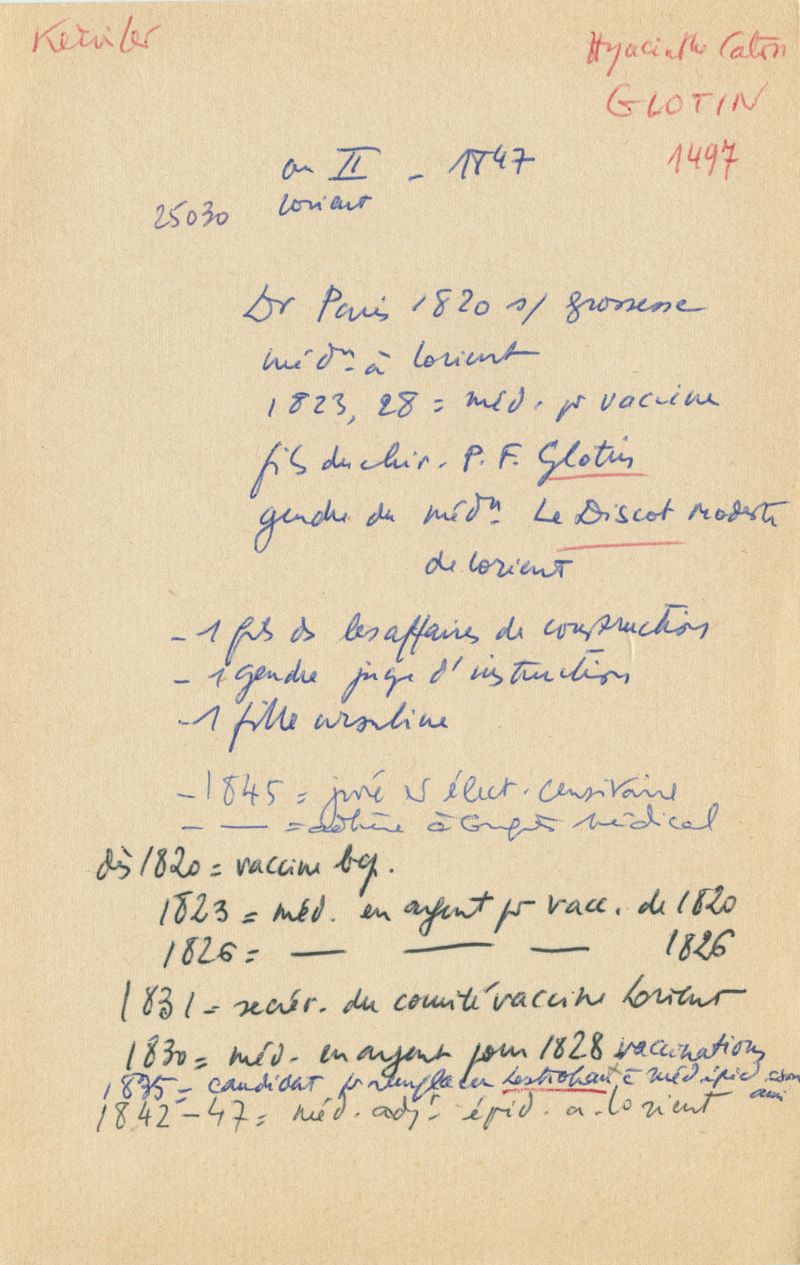 Hyacinthe Caton
GLOTIN
1497
an II - 1847
25030 Lorient
Dr Paris 1820 s/ grossesse
médn à Lorient
1823, 28 = méd. pr vaccine
fils du chir. P. F. Glotin
gendre du médn Le Discot Modeste
de Lorient
- 1 fils ds les affaires de construction
- 1 gendre juge d'instruction
- 1 fille ursuline
- 1845 = juré élect. censitaire
- — = adhère à Congrès Médical
dès 1820 = vaccine bcp.
1823 = méd. en argent pr vacc. de 1820
1826 = — — — 1826
1831 = secrér. du comité vaccine Lorient
1830 = méd. en argent pour 1828 vaccinations
1835 = candidat pr remplacer Lestrohan à méd épid
1842 - 47 = méd. adjt épid. a. Lorient